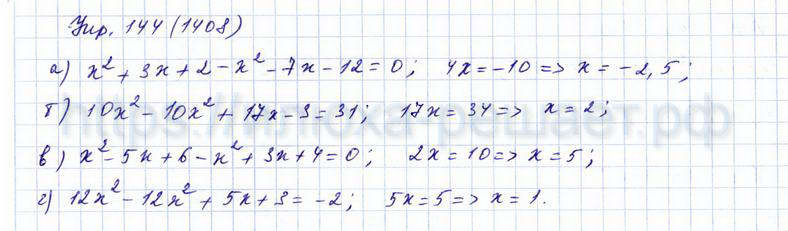 Упр. 144 (1408)
а) x² + 3x + 2 - x² - 7x - 12 = 0; 4x = -10 => x = -2,5;
б) 10x² - 10x² + 17x - 3 = 31; 17x = 34 => x = 2;
в) x² - 5x + 6 - x² + 3x + 4 = 0; 2x = 10 => x = 5;
г) 12x² - 12x² + 5x + 3 = -2; 5x = 5 => x = 1.